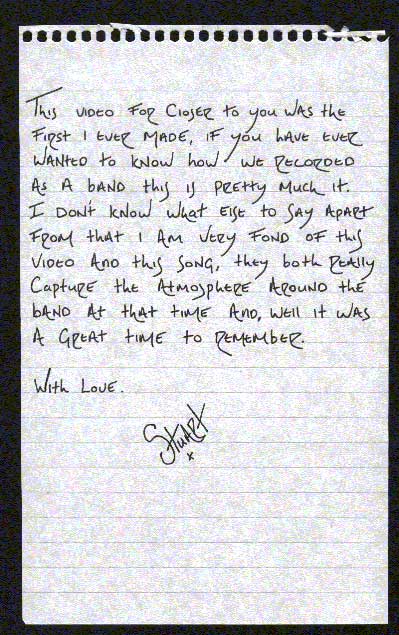 This video for Closer to you was the
first I ever made, if you have ever
wanted to know how we recorded
as a band this is pretty much it.
I don't know what else to say apart
from that I am very fond of this
video and this song, they both really
capture the atmosphere around the
band at that time and, well it was
a great time to remember.
With Love.
Stuart
x